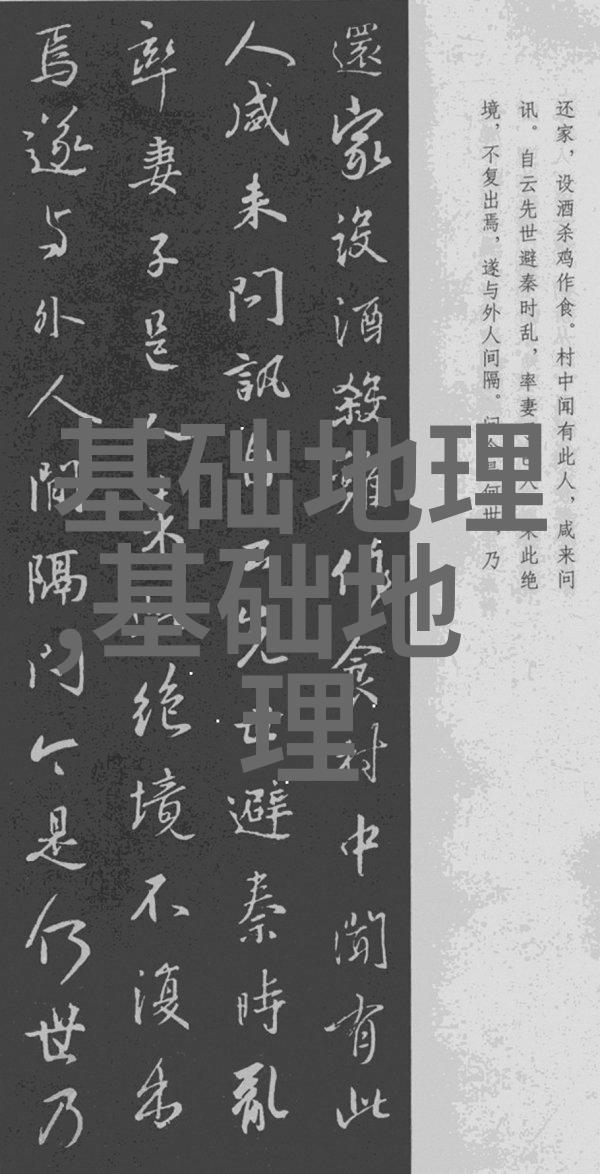 还家，设酒杀鸡作食。村中闻有此人，咸来问
讯。自云先世避秦时乱，率妻人来此绝
境，不复出焉，遂与外人间隔。问何世，乃
還家設酒殺作食村中聞有此
人咸来問訊自云先世避秦時亂
率妻子邑人来此絶境不復出
焉遂与外人間隔問今是何世乃
基础地理
,基础地
理